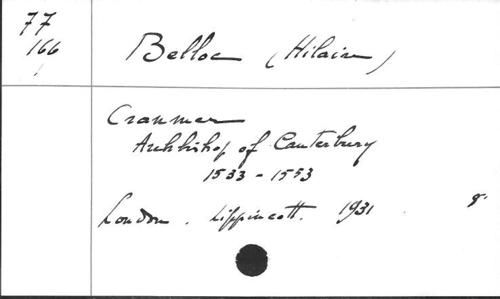 77
166
Belloc (Hilaire)
Cranmer
Archbishop of Canterbury
1533-1553
London. Lippincott. 1931 8°